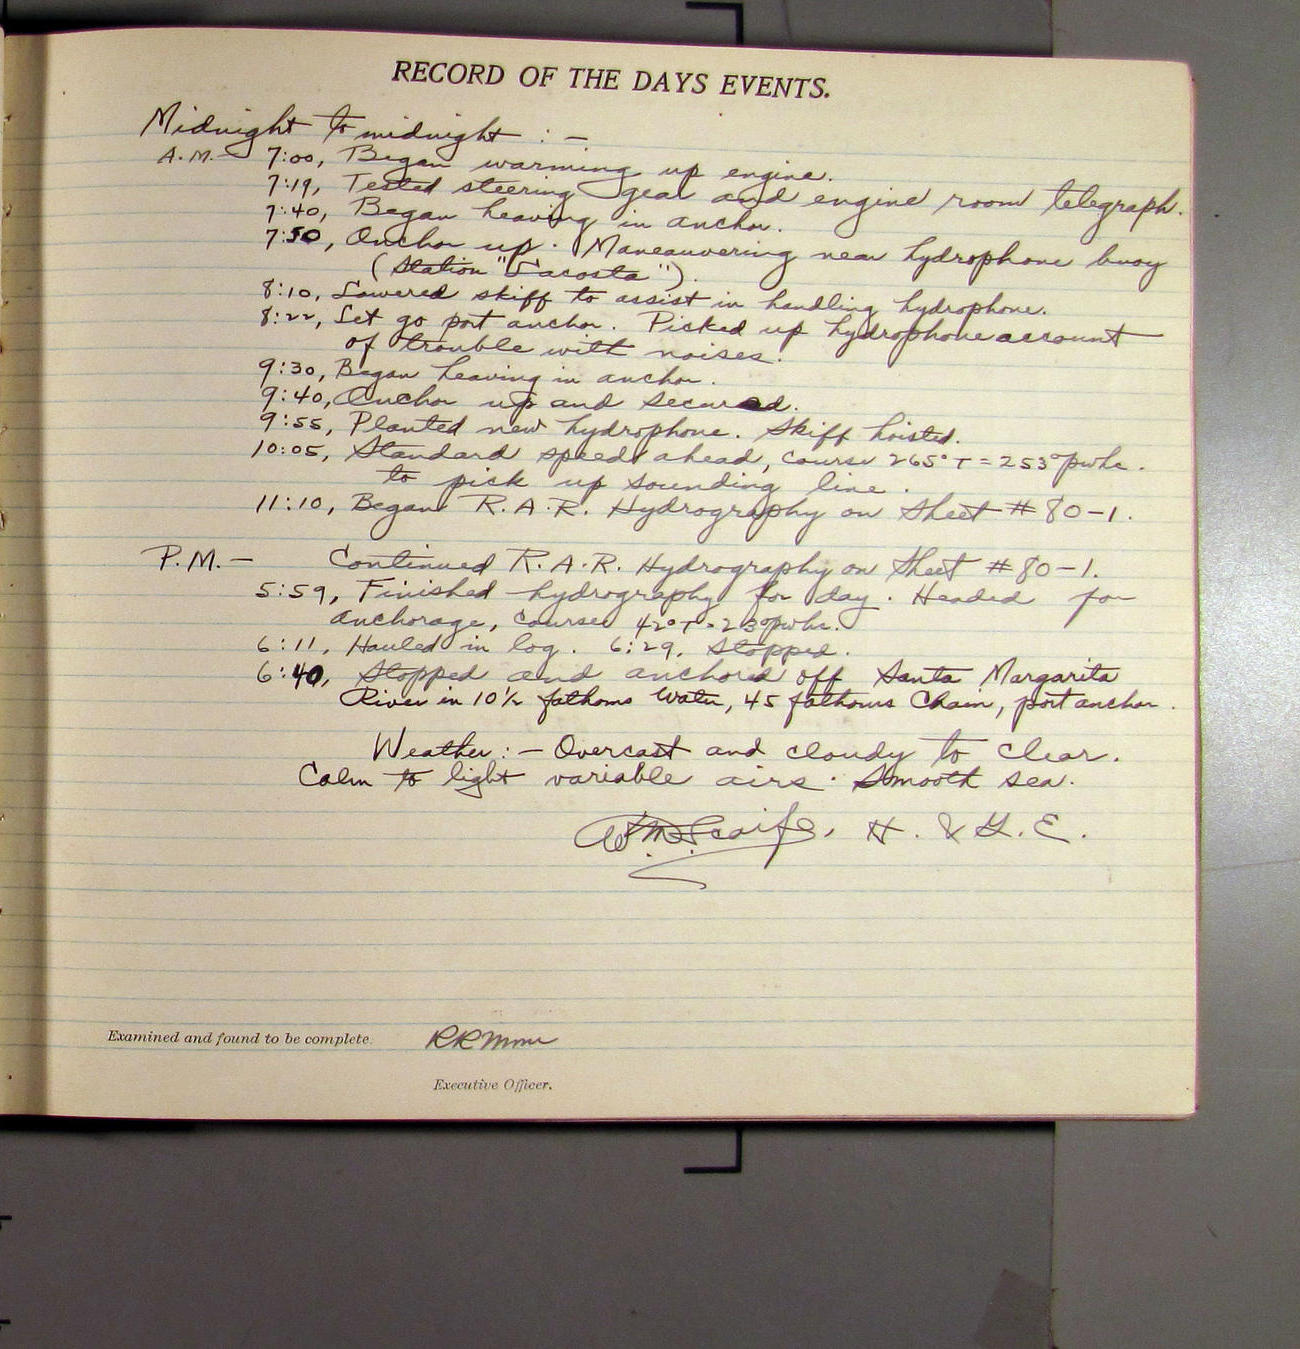 RECORD OF THE DAYS EVENTS.
Midnight to midnight : -
A.M. - 7:00, Began warming up engine.
7:19, Tested steering gear and engine room telegraph.
7:40, Began heaving in anchor.
7:50, Anchor up. Maneauvering near hydrophone buoy
(Station "Lacosta").
8:10, Lowered skiff to assist in handling hydrophone.
8:22, Let go port anchor. Picked up hydrophone account
of trouble with noises.
9:30, Began heaving in anchor.
9:40, Anchor up and secured.
9:55, Planted new hydrophone. Skiff hoisted.
10:05, Standard speed ahead, course 265° T = 253° pwhc.
to pick up sounding line.
11:10, Began R.A.R. Hydrography on Sheet #80-1.
P.M. - Continued R.A.R. Hydrography on Sheet #80-1.
5:59, Finished hydrography for day. Headed for
anchorage, course 42° T = 23° pwhc.
6:11, Hauled in log. 6:29, Stopped.
6:40, Stopped and anchored off Santa Margarita
River in 10½ fathoms water, 45 fathoms Chain, port anchor.
Weather: - Overcast and cloudy to clear.
Calm to light variable airs. Smooth sea.
Wm. Scaife, H. & G. E.
Examined and found to be complete.
Executive Officer.